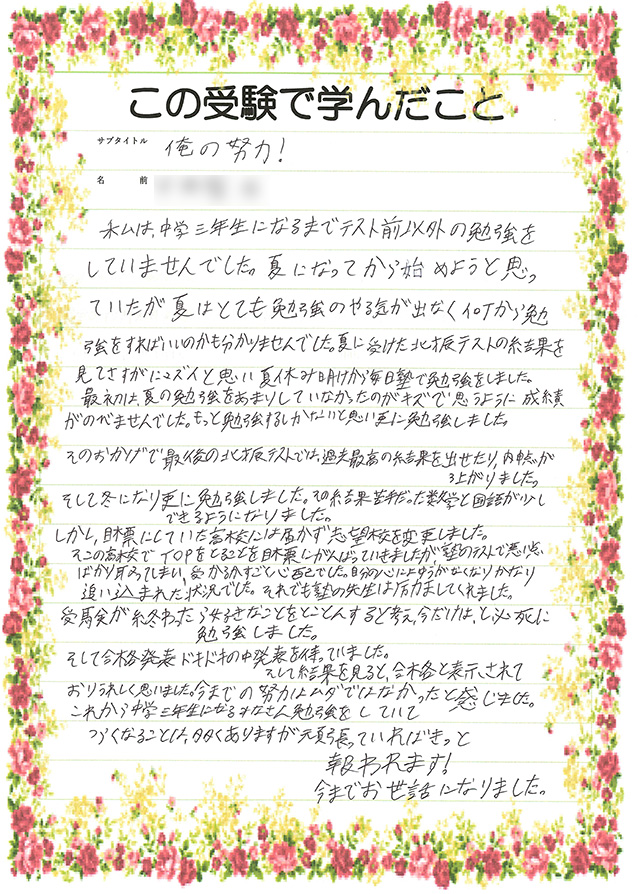 この受験で学んだこと
サブタイトル 俺の努力!
名前
私は、中学三年生になるまでテスト前以外の勉強を
していませんでした。夏になってから始めようと思っ
ていたが夏はとても勉強のやる気が出なく何から勉
強をすればいいのかも分かりませんでした。夏に受けた北辰テストの結果を
見てさすがにマズイと思い夏休み明けから毎日塾で勉強をしました。
最初は、夏の勉強をあまりしていなかったのがキズで思うように成績
がのびませんでした。もっと勉強するしかないと思い更に勉強しました。
そのおかげで最後の北辰テストでは、過去最高の結果を出せたり、内申点が
上がりました。
そして冬になり更に勉強しました。その結果苦手だった数学と国語が少し
できるようになりました。
しかし、目標にしていた高校には届かず志望校を変更しました。
そこの高校でTOPをとることを目標にがんばっていきましたが、塾のテストで悪い点
ばかり取ってしまい、受かるかすごく心配でした。自分の心によゆうがなくなりかなり
追い込まれた状況でした。それでも塾の先生は励ましてくれました。
受験が終わったら好きなことをとことんすると考え、今だけは、と必死に
勉強しました。
そして合格発表ドキドキの中発表を待っていました。
そして結果を見ると、合格と表示されて
おりうれしく思いました。今までの努力はムダではなかったと感じました。
これから中学三年生になるみなさん勉強をしていて
つらくなることは、多くありますが頑張っていればきっと
報われます!
今までお世話になりました。